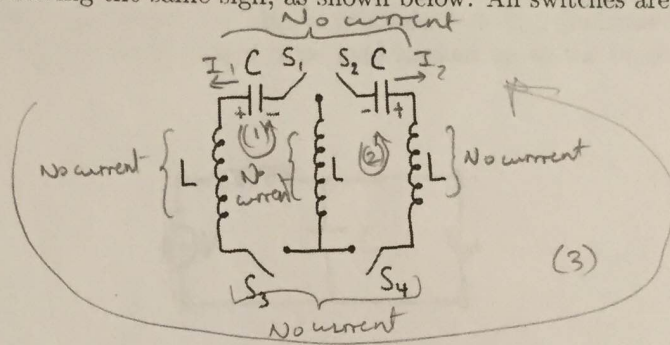 ing the same sign, as shown below. All switches are
No current
I1 C S1 S2 C I2
+ - - +
1 2
No current { L { No current L L } No current
(3)
S3 S4
No current